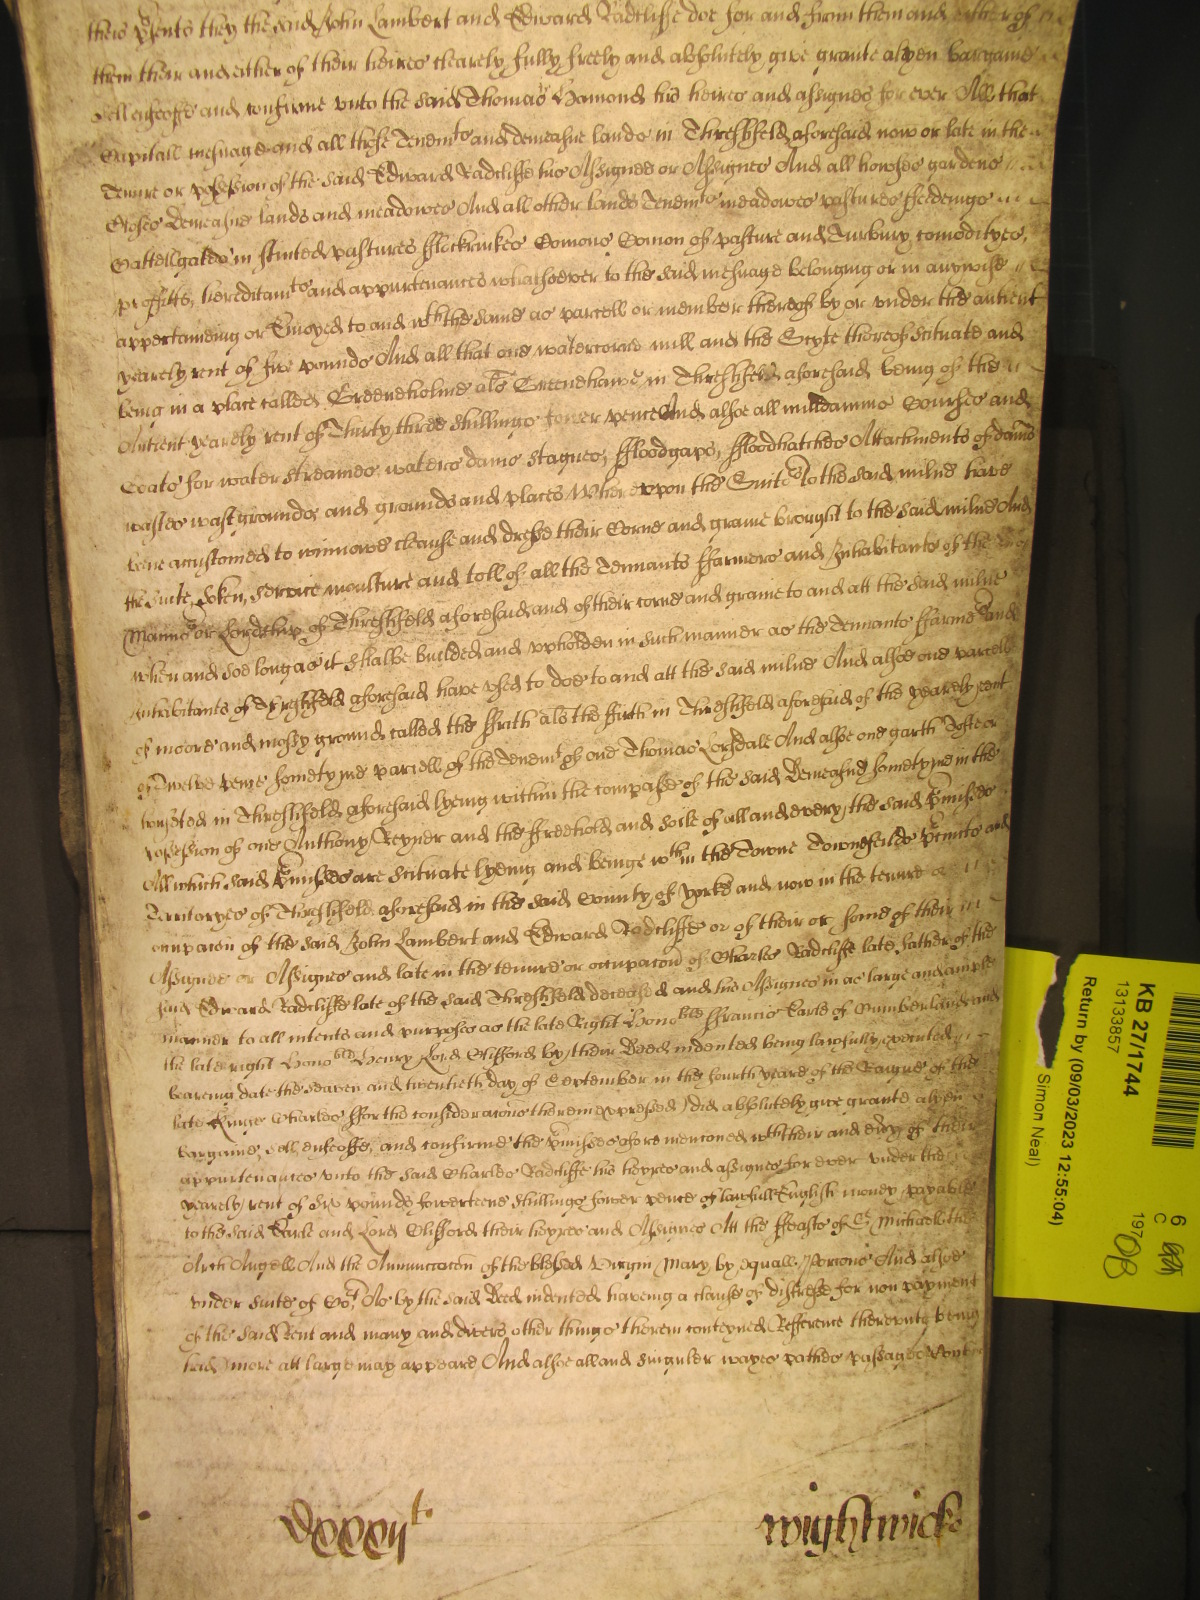 theis p'sents they the said John Lambert and Edward Radcliffe doe for and from them and either of
them their and either of their heires clearely fully freely and absolutely give grante alyen bargaine
sell enfeoffe and confirme unto the said Thomas Hamond his heires and assignes for ever All that
Capitall mesuage and all those Tenemts and demeasne lands in Threshfeld aforesaid now or late in the
Tenure or possession of the said Edward Radcliffe his Assignee or Assignes And all howses gardens
Closes demeasne lands and meadowes And all other lands Tenemts meadowes pastures ffeedeings
Cattellgates in stinted pastures fflockrakes Comons Comon of pasture and Turbury comodityes,
proffitts, hereditamts and appurtenances whatsoever to the said mesuage belonging or in anywise
appertaineing or Enioyed to and wth the same as parcell or member thereof by or under the antient
yearely rent of five pounds And all that one watercorne mill and the Scyte thereof scituate and
being in a place called Greeneholme als Greenehawe in Threshfeld aforesaid being of the
Antient yearely rent of Thirty three shillings fower pence And alsoe all milldamms Courses and
Coats for water streames waters dams stagnes, ffloodgaps, ffloodhatches Attachments of dams
wastes wast grounds, and grounds and places Whereupon the Suitrs to the said milne have
bene accustomed to winnowe cleanse and dresse their Corne and graine brought to the said milne And
the suite, soken, service moulture and toll of all the Tennants ffarmers and Inhabitants of the
Mannor or Lordship of Threshfeld aforesaid and of their corne and graine to and att the said milne
when and soe long as it shalbe builded and upholden in such manner as the Tennants ffarmrs and
Inhabitants of Threshfeld aforesaid have used to doe to and att the said milne And alsoe one parcell
of moore and mossy ground called the ffrith als the ffirth in Threshfeld aforesaid of the yearely rent
of Twelve pence sometyme parcell of the Tenemt of one Thomas Lorsdale And alsoe one garth Tofte or
in Threshfeld aforesaid lyeing within the compasse of the said Demeasne sometyme in the
possession of one Anthony Reyner and the ffreehold and soile of all and every the said p'misses
All which said p'misses are scituate lyeing and beinge wthin the Towne Townefeilds p'cincts and
Territoryes of Threshfeld aforesaid in the said County of Yorke and now in the tenure or
occupacon of the said John Lambert and Edward Radcliffe or of their or some of their
Assignee or Assignes and late in the tenure or occupacon of Charles Radcliffe late father of the
said Edward Radcliffe late of the said Threshfeld deceased and his Assignes in as large and ample
manner to all intents and purposes as the late Right Honoble ffrancis Earle of Cumberland and
the late right Honoble Henry Lord Clifford by their Deed indented being lawfully executed
beareing date the seaven and twentieth day of September in the fourth yeare of the Raigne of the
late Kinge Charles ffor the consideracons therein expressed did absolutely give grante alyen
bargaine, sell, enfeoffe, and confirme the p'misses afore mentioned wth their and every of their
appurtenances unto the said Charles Radcliffe his heyres and assignes for ever under the
yearely rent of Six pounds fowerteene shillings fower pence of lawfull English money payable
to the said Earle and Lord Clifford their heyres and Assignes Att the ffeasts of St Michaell the
Arch Angell And the Annunciacon of the blessed Virgin Mary by equall Porcons And alsoe
under suite of Cort As by the said Deed indented haveing a clause of distresse for non payment
of the said Rent and many and divers other things therein conteyned Refference thereunto being
had more att large may appeare And alsoe all and singuler wayes pathes passages
wightwicke
KB 27/1744
13133857
Return by (09/03/2023 12:55:04)
Simon Neal)
6
C
197